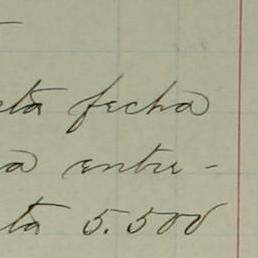 ta fecha
a entre-
ta 5.500